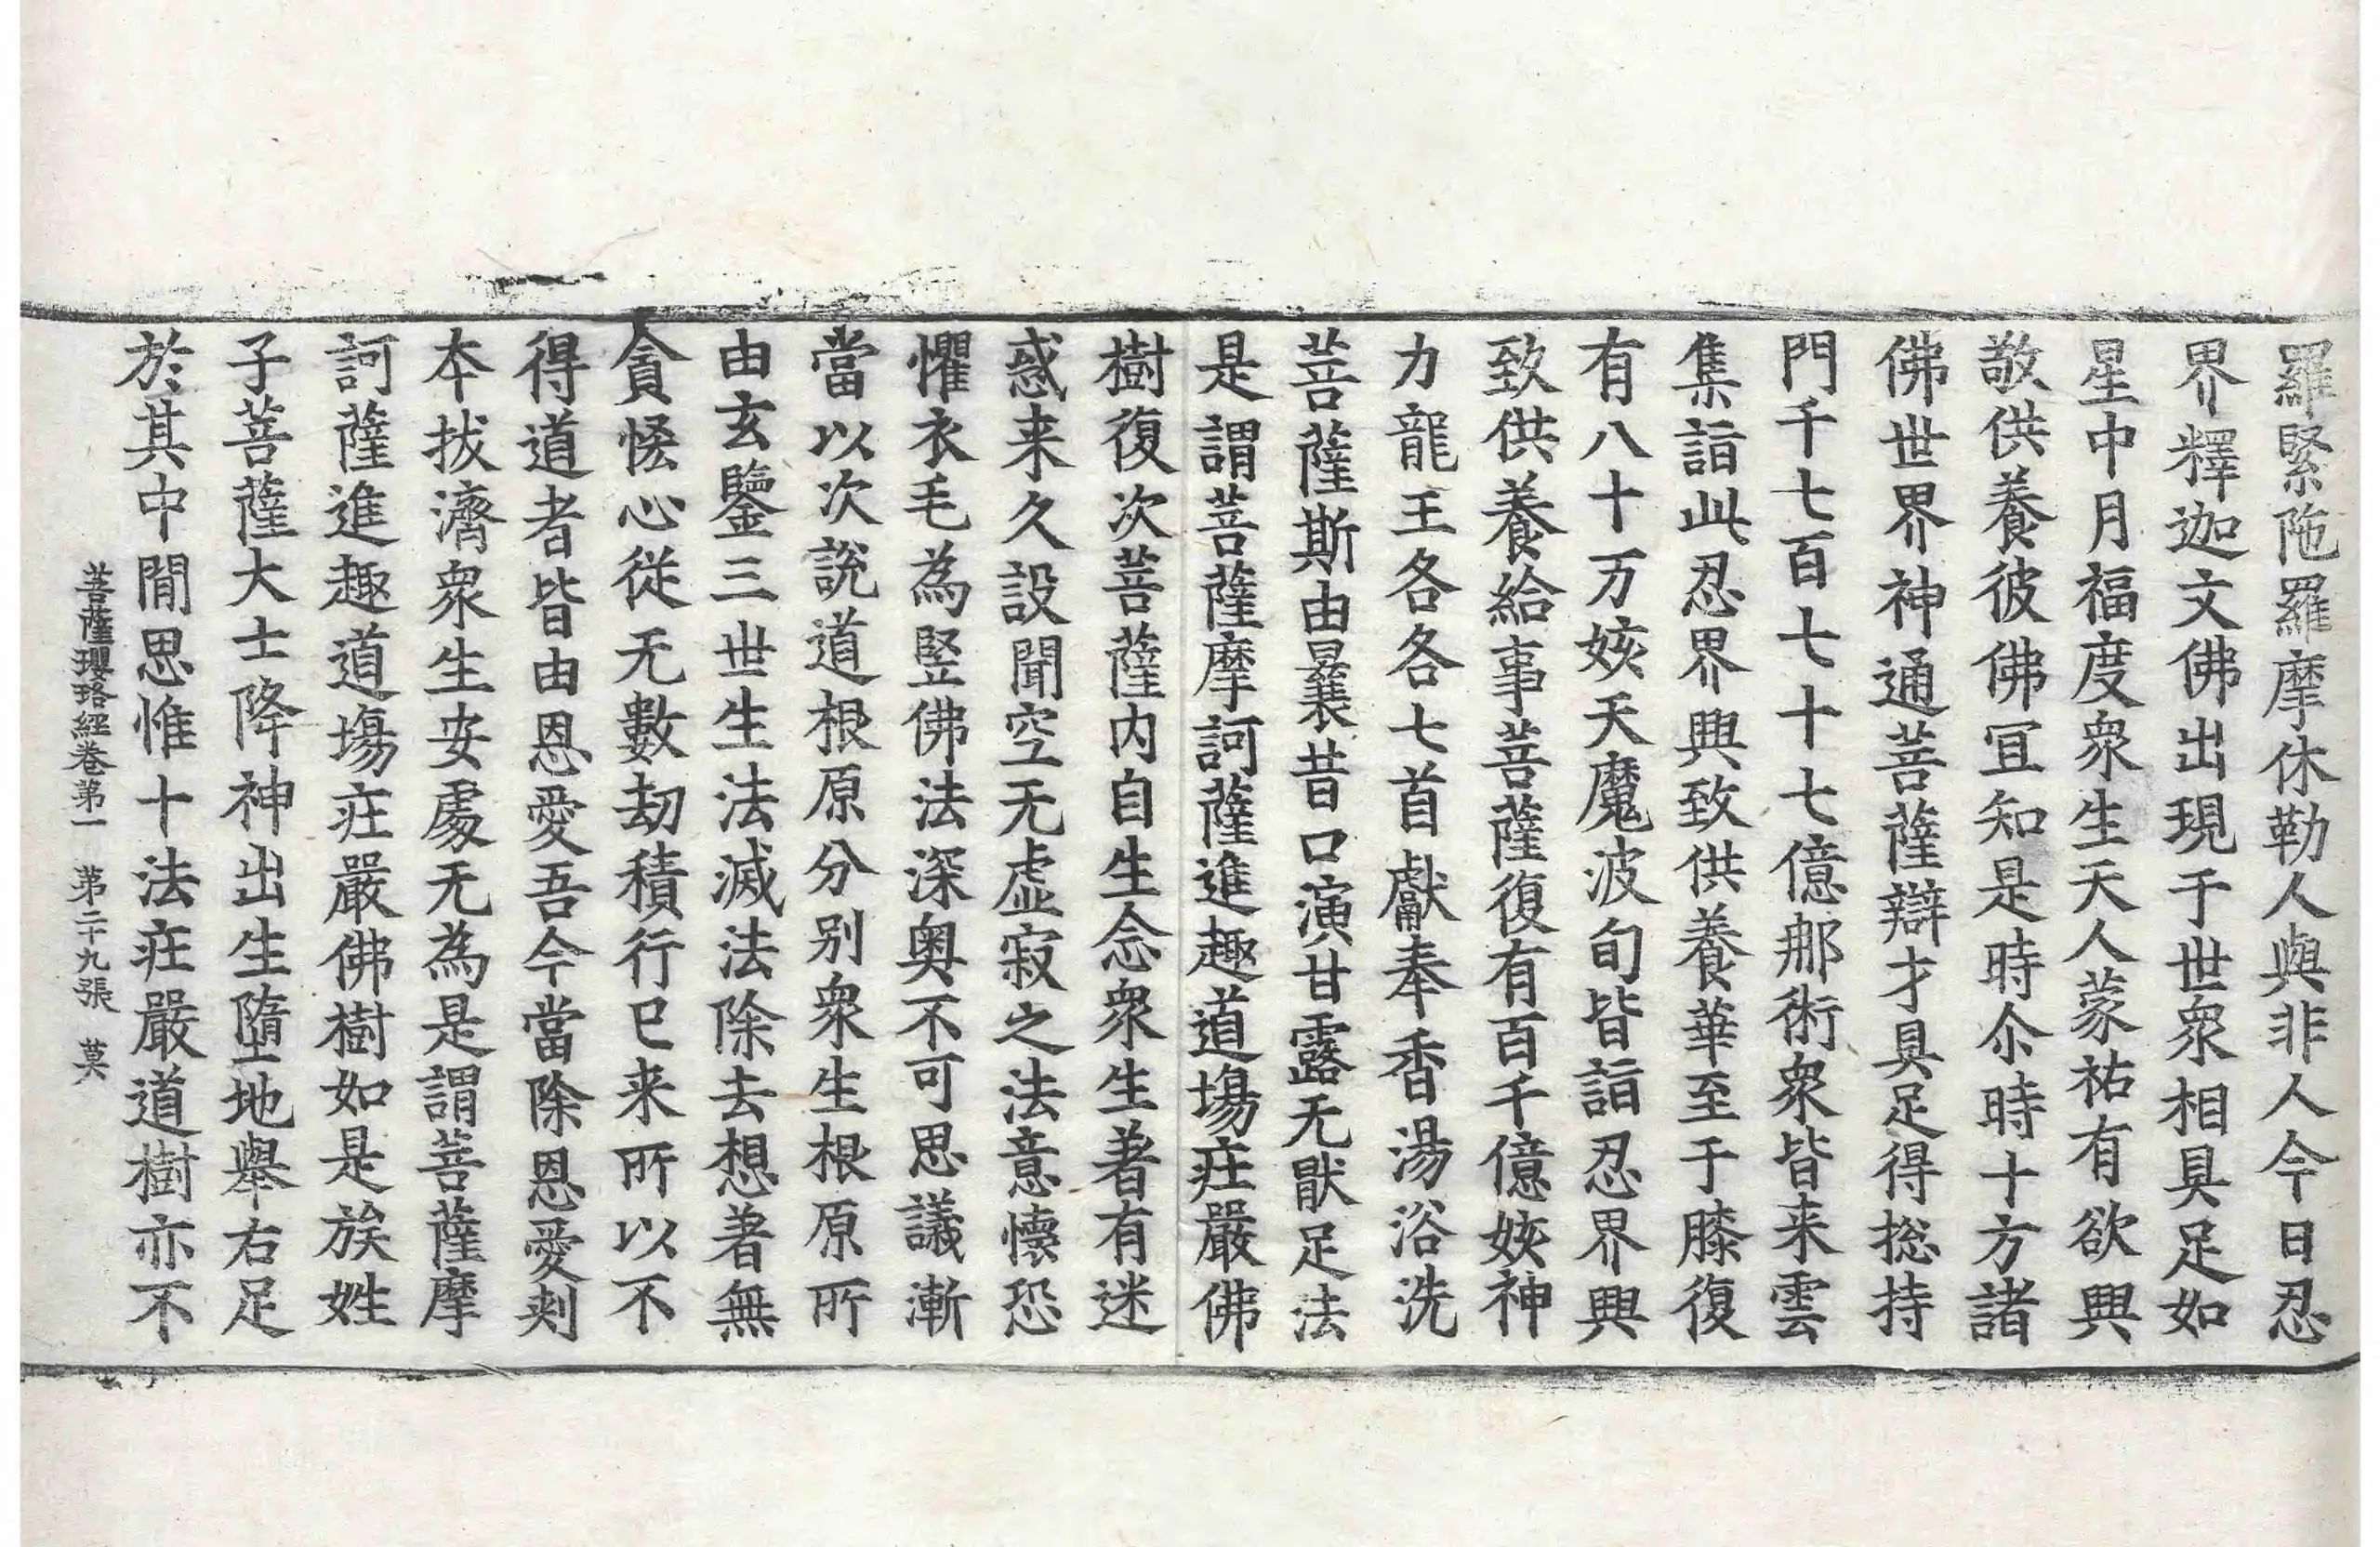 羅緊陁羅摩休勒人與非人今日忍
界釋迦文佛出現于世衆相具足如
星中月福度衆生天人蒙祐有欲興
敬供養彼佛冝知是時尒時十方諸
佛世界神通菩薩辯才具足得捴持
門千七百七十七億那術衆皆来雲
集詣此忍界興致供養華至于膝復
有八十万姟天魔波旬皆詣忍界興
致供養給事菩薩復有百千億姟神
力龍王各各七首獻奉香湯浴洗
菩薩斯由曩昔口演甘露无猒足法
是謂菩薩摩訶薩進趣道場莊嚴佛
樹復次菩薩内自生念衆生著有迷
惑来久設聞空无虚寂之法意懷恐
懼衣毛為竪佛法深奥不可思議漸
當以次說道根原分别衆生根原所
由玄鑒三世生法滅法除去想著無
貪悋心從无數劫積行已来所以不
得道者皆由恩愛吾今當除恩愛刾
本拔濟衆生安處无為是謂菩薩摩
訶薩進趣道場莊嚴佛樹如是族姓
子菩薩大士降神出生墮地舉右足
於其中間思惟十法莊嚴道樹亦不
菩薩瓔珞經卷第一 第二十九張 莫